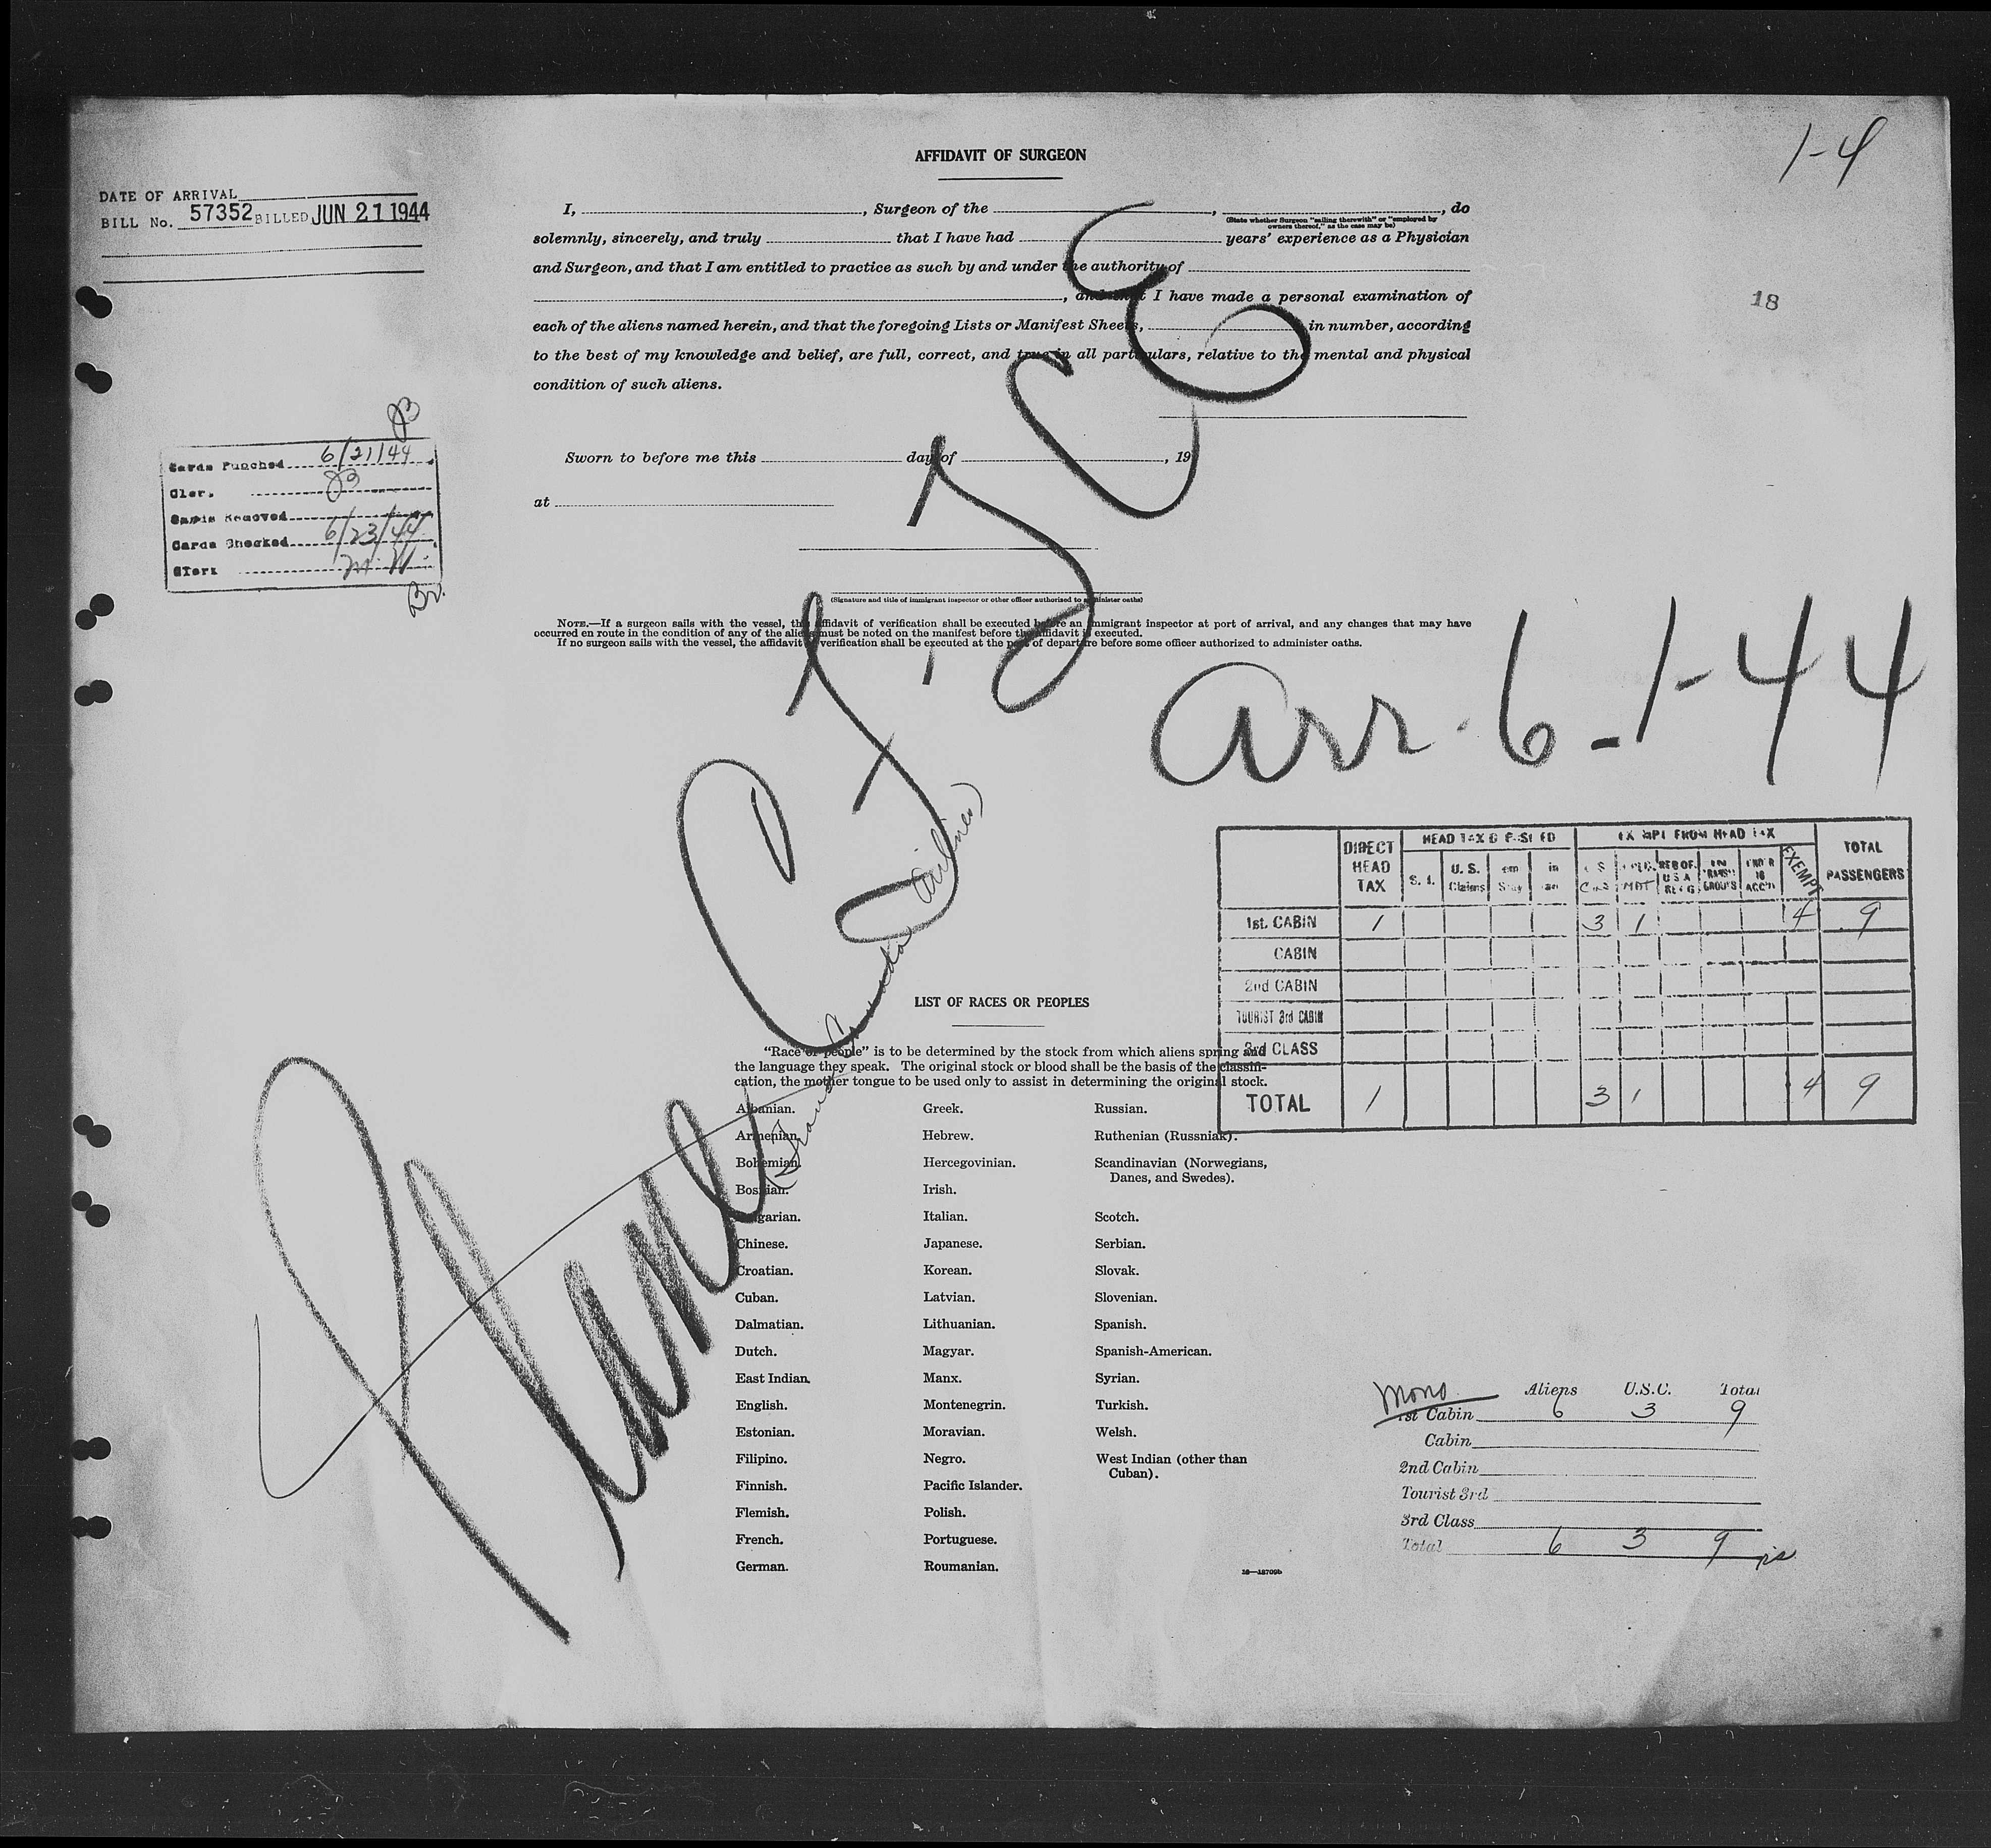 AFFIDAVIT OF SURGEON
1-4
DATE OF ARRIVAL
BILL No. 57352 BILLED JUN 21 1944
I, , Surgeon of the , , do
(State whether Surgeon "sailing therewith" or "employed by owners thereof," as the case may be)
solemnly, sincerely, and truly that I have had years' experience as a Physician
and Surgeon, and that I am entitled to practice as such by and under the authority of
, and that I have made a personal examination of
each of the aliens named herein, and that the foregoing Lists or Manifest Sheets, in number, according
to the best of my knowledge and belief, are full, correct, and true in all particulars, relative to the mental and physical
condition of such aliens.
18
Sworn to before me this day of , 19
at
(Signature and title of immigrant inspector or other officer authorized to administer oaths)
NOTE.—If a surgeon sails with the vessel, the affidavit of verification shall be executed before an immigrant inspector at port of arrival, and any changes that may have
occurred en route in the condition of any of the aliens must be noted on the manifest before the affidavit is executed.
If no surgeon sails with the vessel, the affidavit of verification shall be executed at the port of departure before some officer authorized to administer oaths.
Cards Punched 6/21/44
Cler.
Cards Removed
Cards Checked 6/23/44
Clerk M.W.
Br.
Arr. 6-1-44
Plane
(Trans Canada Airlines)
HEAD TAX DEPOSITED EXEMPT FROM HEAD TAX
DIRECT HEAD TAX S. I. U. S. Claims EXEMPT TOTAL PASSENGERS
1st. CABIN 1 3 1 4 9
CABIN
2nd CABIN
TOURIST 3rd CABIN
3rd CLASS
TOTAL 1 3 1 4 9
LIST OF RACES OR PEOPLES
"Race or people" is to be determined by the stock from which aliens spring and
the language they speak. The original stock or blood shall be the basis of the classifi-
cation, the mother tongue to be used only to assist in determining the original stock.
Albanian.
Armenian.
Bohemian.
Bosnian.
Bulgarian.
Chinese.
Croatian.
Cuban.
Dalmatian.
Dutch.
East Indian.
English.
Estonian.
Filipino.
Finnish.
Flemish.
French.
German.
Greek.
Hebrew.
Hercegovinian.
Irish.
Italian.
Japanese.
Korean.
Latvian.
Lithuanian.
Magyar.
Manx.
Montenegrin.
Moravian.
Negro.
Pacific Islander.
Polish.
Portuguese.
Roumanian.
Russian.
Ruthenian (Russniak).
Scandinavian (Norwegians,
Danes, and Swedes).
Scotch.
Serbian.
Slovak.
Slovenian.
Spanish.
Spanish-American.
Syrian.
Turkish.
Welsh.
West Indian (other than
Cuban).
Mono Aliens U.S.C. Total
1st Cabin 6 3 9
Cabin
2nd Cabin
Tourist 3rd
3rd Class
Total 6 3 9